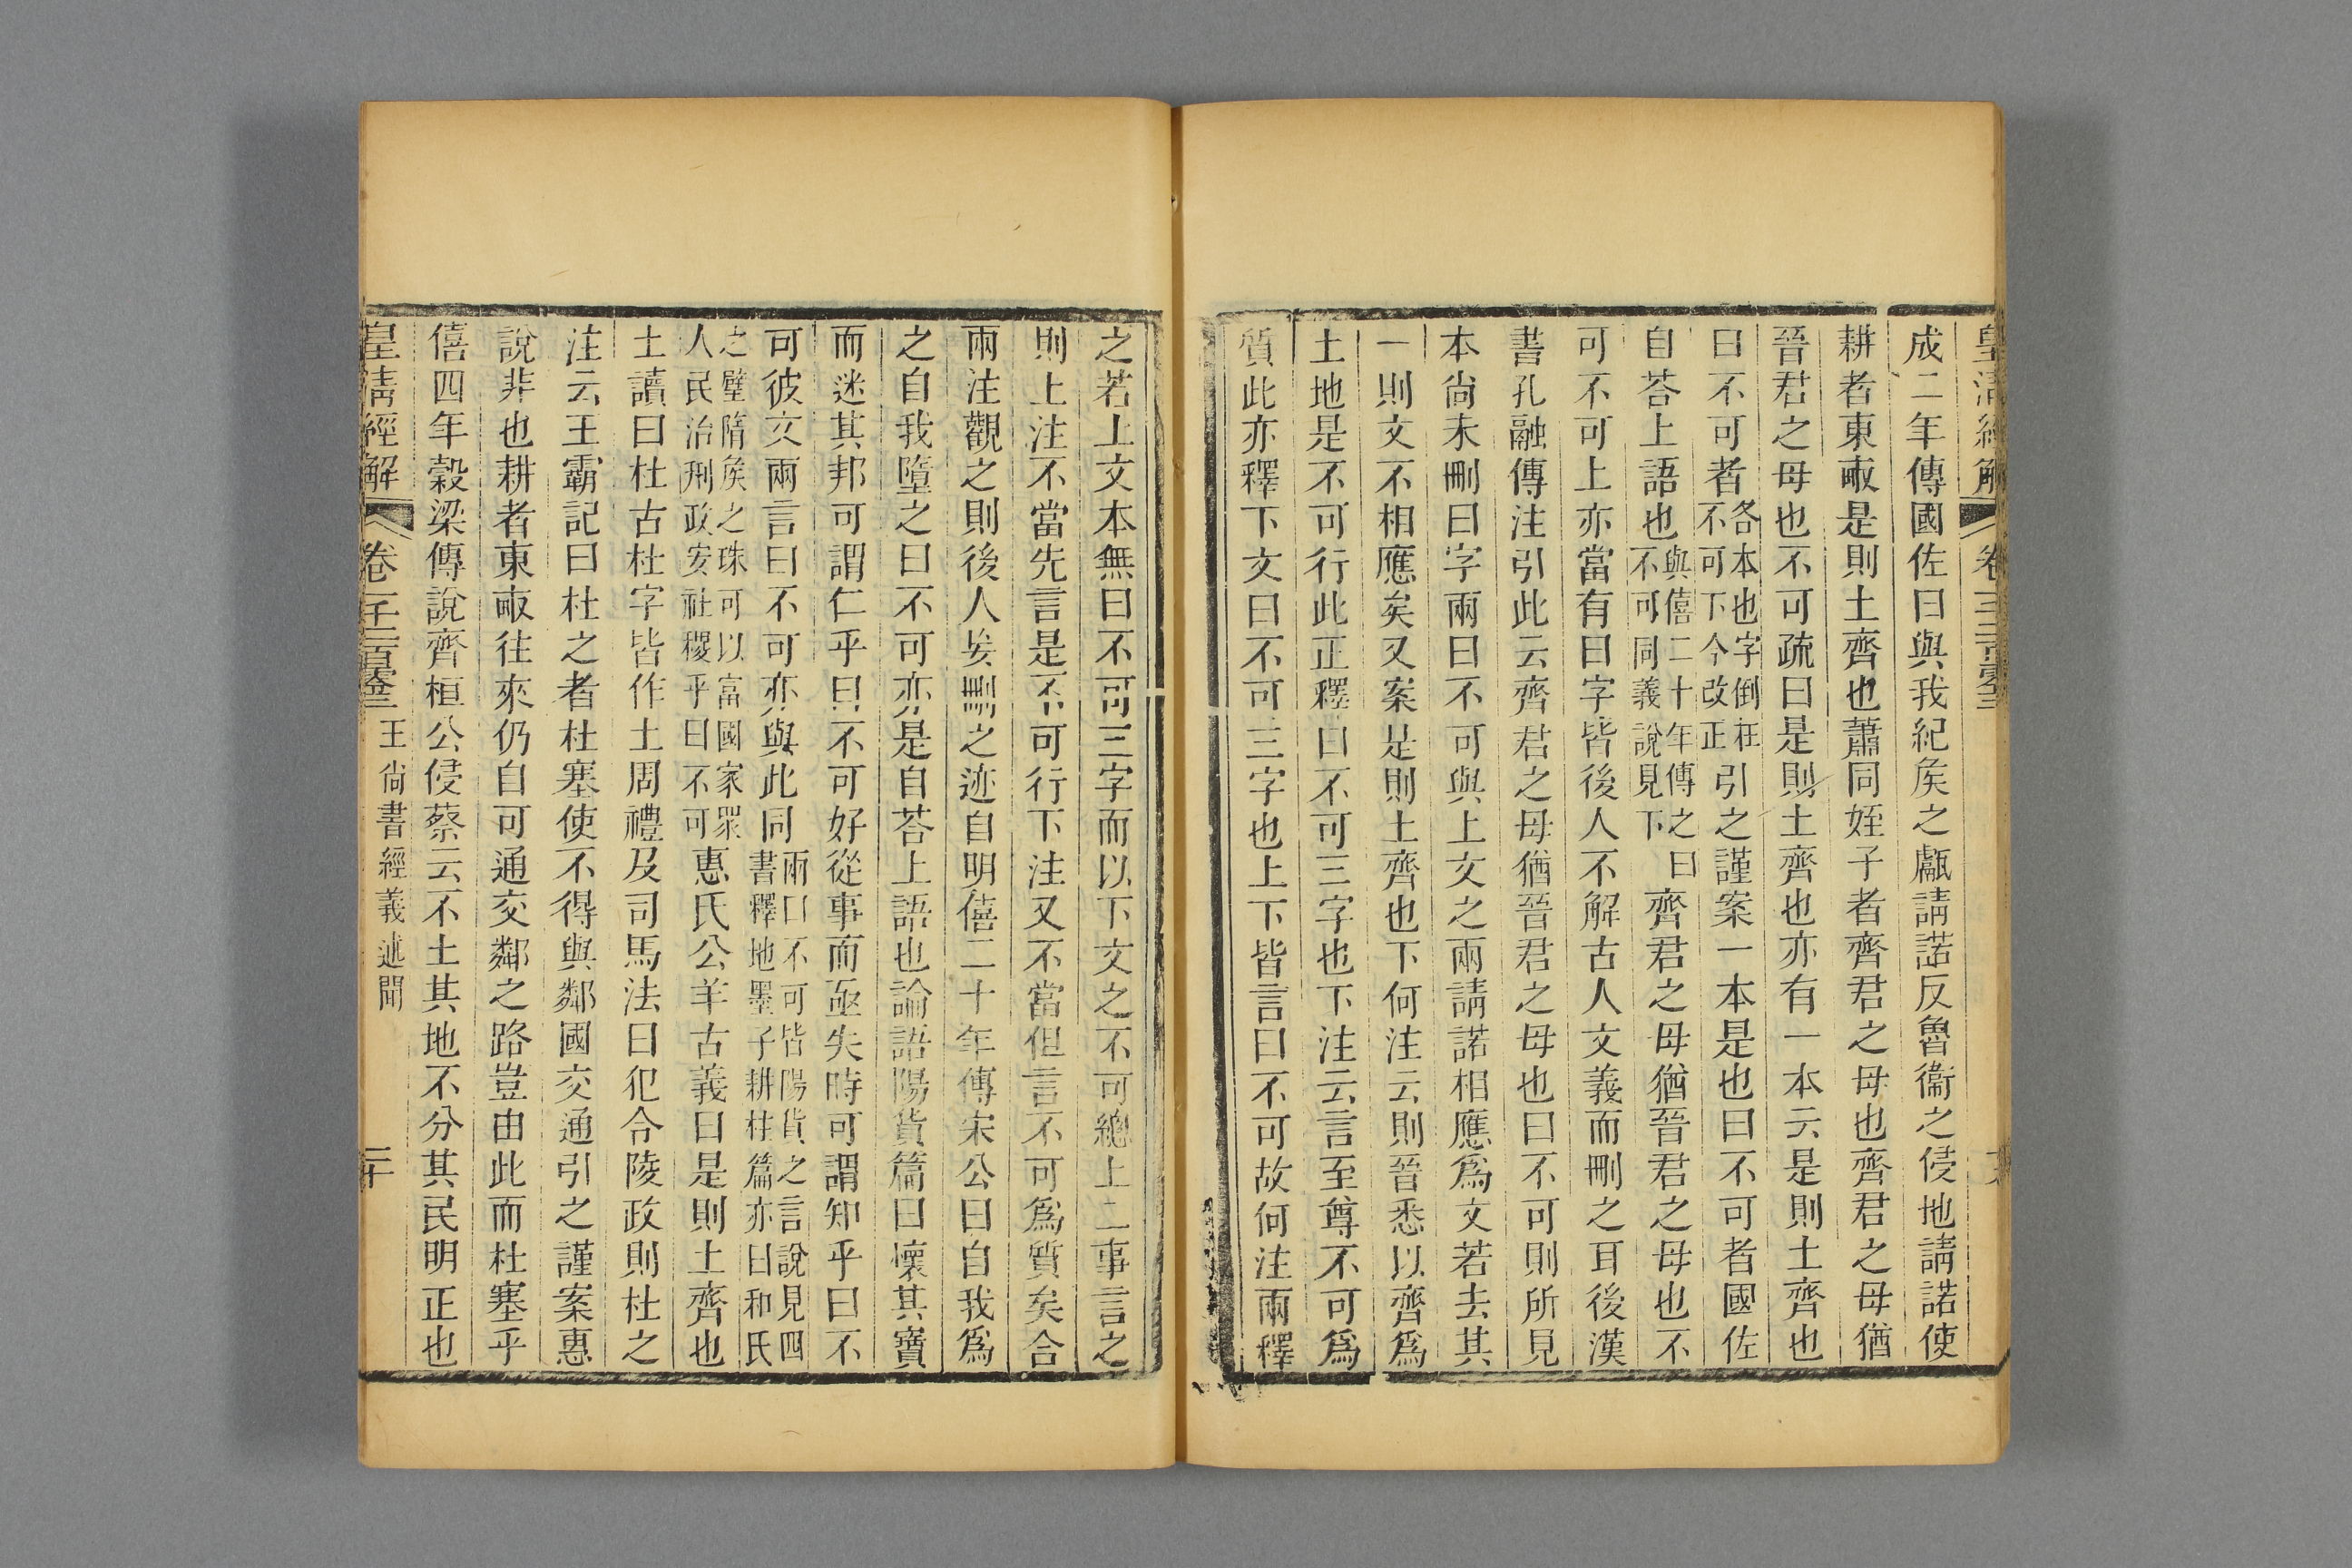 皇清經解
成二年傳國佐曰與我紀矦之甗請諾反魯衞之侵地請諾使
耕者東畝是則土齊也蕭同姪子者齊君之母也齊君之母猶
晉君之母也不可疏曰是則土齊也亦有一本云是則土齊也
曰不可者各本也字倒在不可下今改正引之謹案一本是也曰不可者國佐
自荅上語也與僖二十年傳之曰不可同義說見下齊君之母猶晉君之母也不
可不可上亦當有曰字皆後人不解古人文義而刪之耳後漢
書孔融傳注引此云齊君之母猶晉君之母也曰不可則所見
本尚未刪曰字兩曰不可與上文之兩請諾相應爲文若去其
一則文不相應矣又案是則土齊也下何注云則晉悉以齊爲
土地是不可行此正釋曰不可三字也下注云言至尊不可爲
質此亦釋下文曰不可三字也上下皆言曰不可故何注兩釋
之若上文本無曰不可三字而以下文之不可總上二事言之
則上注不當先言是不可行下注又不當但言不可爲質矣合
兩注觀之則後人妄刪之迹自明僖二十年傳宋公曰自我爲
之自我墮之曰不可亦是自荅上語也論語陽貨篇曰懷其寶
而迷其邦可謂仁乎曰不可好從事而亟失時可謂知乎曰不
可彼文兩言曰不可亦與此同兩曰不可皆陽貨之言說見四書釋地墨子耕柱篇亦曰和氏
之璧隋矦之珠可以富國家眾人民治刑政安社稷乎曰不可惠氏公羊古義曰是則土齊也
土讀曰杜古杜字皆作土周禮及司馬法曰犯令陵政則杜之
注云王霸記曰杜之者杜塞使不得與鄰國交通引之謹案惠
說非也耕者東畝往來仍自可通交鄰之路豈由此而杜塞乎
僖四年穀梁傳說齊桓公侵蔡云不土其地不分其民明正也
皇清經解
王尚書經義述聞
二十